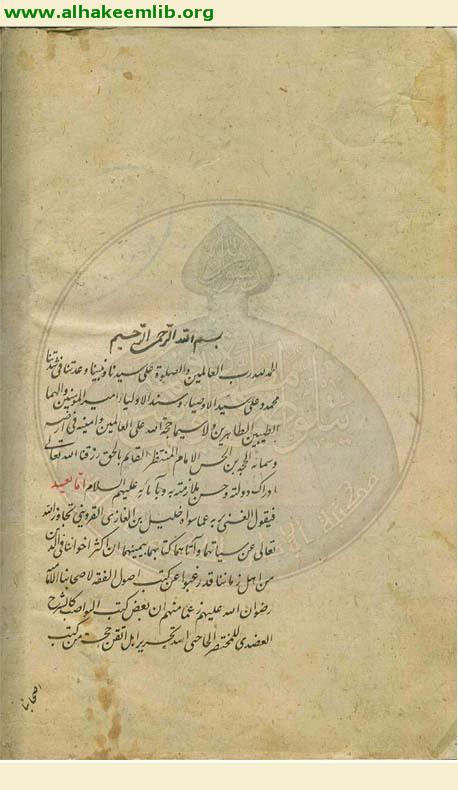 www.alhakeemlib.org
بسم الله الرحمن الرحيم
الحمد لله رب العالمين والصلوة على سيدنا ونبينا وعدتنا فى شدتنا
محمد وعلى سيد الاوصياء وسند الاولياء امير المؤمنين وآلهما
الطيبين الطاهرين ولا سيما حجة الله على العالمين وامينه فى ارضه
وسمائه الحجة بن الحسن الامام المنتظر القائم بالحق رزقنا الله تعالى
ادراك دولته وحسن ملازمته به وبآبائه عليهم السلام اما بعد
فيقول الغنى بربه عما سواه خليل بن الغازى القزوينى تجاوز الله
تعالى عن سيآتهما وآتاهما كتابهما بيمينهما ان اكثر اخواننا فى الدين
من اهل زماننا قد رغبوا عن كتب اصول الفقه لاصحابنا الامامية
رضوان الله عليهم زعما منهم ان بعض كتب العامة كالشرح
العضدى للمختصر الحاجبى اشد تحريرا بل اتقن حجة من كتب
اصحابنا